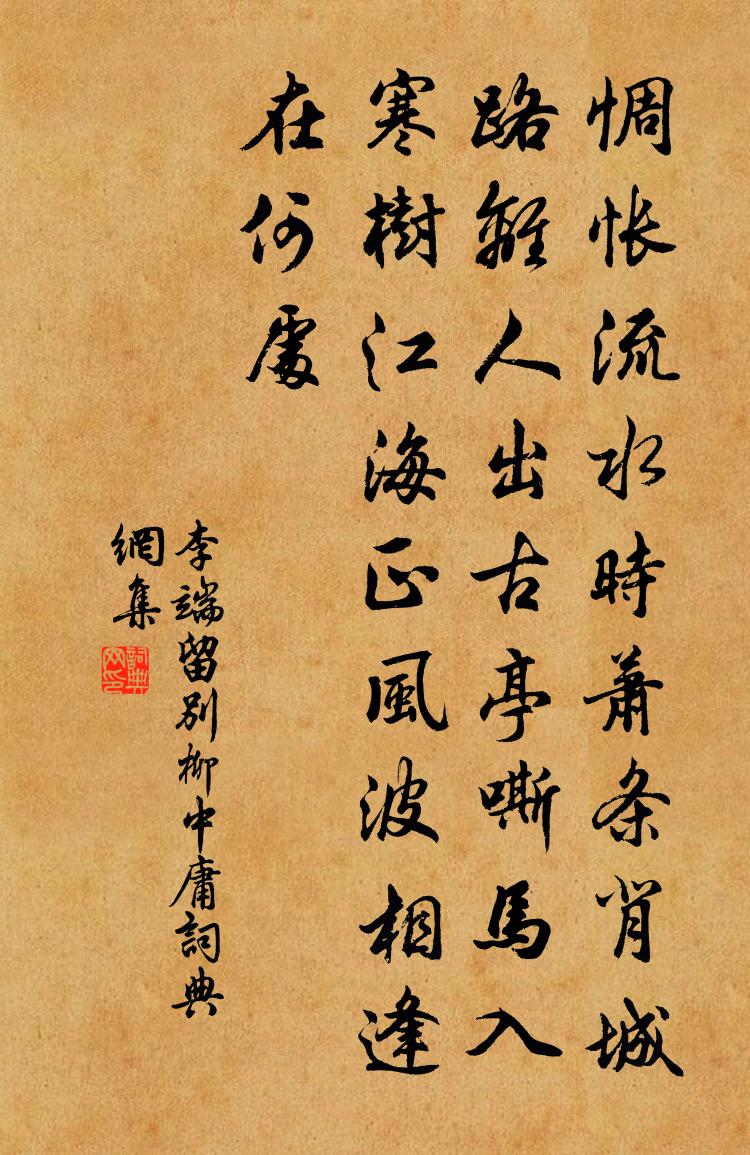 惆悵流水時蕭条背城
路離人出古亭嘶馬入
寒樹江海正風波相逢
在何處
李端留別柳中庸詞典
網集
詞典
网印